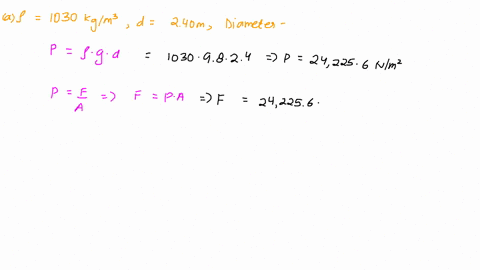 (a) ρ = 1030 kg/m³, d = 2.40m, Diameter -
P = ρ·g·d = 1030·9.8·2.4 => P = 24,225.6 N/m²
P = F/A => F = P·A => F = 24,225.6·